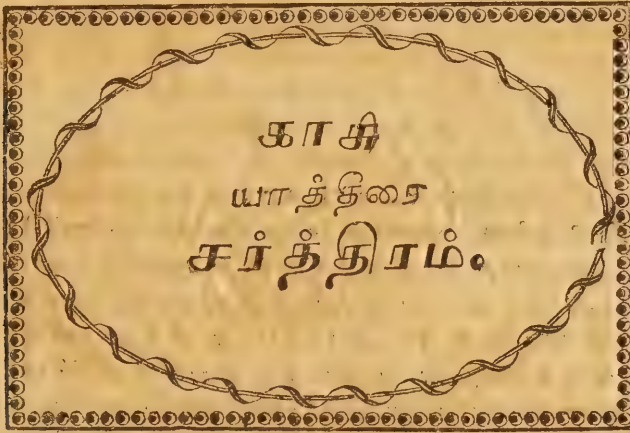 காசி
யாத்திரை
சர்த்திரம்.